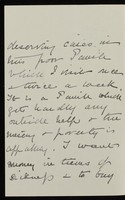 deserving cases in
his poor Parish
which I visit once
& twice a week.
It is a Parish which
gets hardly any
outside help & the
misery & poverty is
appalling. I want
money in times of
sickness & to buy